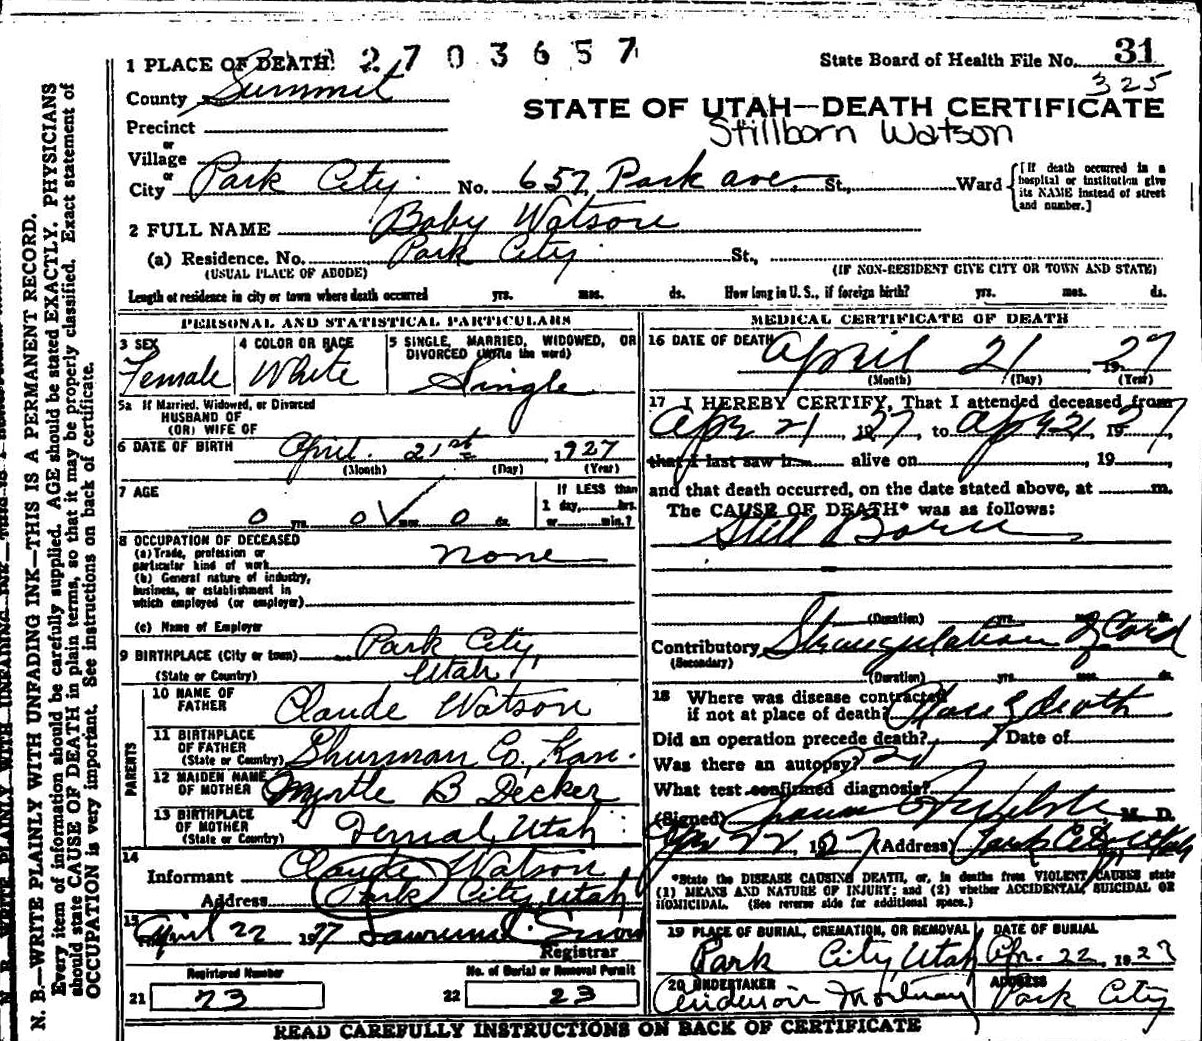 N. B.—WRITE PLAINLY WITH UNFADING INK—THIS IS A PERMANENT RECORD.
Every item of information should be carefully supplied. AGE should be stated EXACTLY. PHYSICIANS
should state CAUSE OF DEATH in plain terms, so that it may be properly classified. Exact statement of
OCCUPATION is very important. See instructions on back of certificate.
2703657
State Board of Health File No. 31
325
1 PLACE OF DEATH
County Summit
STATE OF UTAH—DEATH CERTIFICATE
Stillborn Watson
Precinct
or
Village
or
City Park City No. 657 Park ave St., Ward
[If death occurred in a hospital or institution give its NAME instead of street and number.]
2 FULL NAME Baby Watson
(a) Residence. No. Park City St.,
(USUAL PLACE OF ABODE) (IF NON-RESIDENT GIVE CITY OR TOWN AND STATE)
Length of residence in city or town where death occurred yrs. mos. ds. How long in U. S., if foreign birth? yrs. mos. ds.
PERSONAL AND STATISTICAL PARTICULARS
3 SEX
Female
4 COLOR OR RACE
White
5 SINGLE, MARRIED, WIDOWED, OR DIVORCED (Write the word)
Single
5a If Married, Widowed, or Divorced
HUSBAND OF
(OR) WIFE OF
6 DATE OF BIRTH April 21st 1927
(Month) (Day) (Year)
7 AGE
0 yrs. 0 mos. 0 ds.
If LESS than
1 day, hrs.
or min.?
8 OCCUPATION OF DECEASED
(a) Trade, profession or
particular kind of work none
(b) General nature of industry,
business, or establishment in
which employed (or employer)
(c) Name of Employer
9 BIRTHPLACE (City or town) Park City,
(State or Country) Utah
PARENTS
10 NAME OF
FATHER Claude Watson
11 BIRTHPLACE
OF FATHER
(State or Country) Shurman Co, Kan.
12 MAIDEN NAME
OF MOTHER Myrtle B Decker
13 BIRTHPLACE
OF MOTHER
(State or Country) Utah
14
Informant Claude Watson
Address Park City, Utah
15
Filed April 22 1927
Registrar
Registered Number
21 23
No. of Burial or Removal Permit
22 23
MEDICAL CERTIFICATE OF DEATH
16 DATE OF DEATH April 21 1927
(Month) (Day) (Year)
17 I HEREBY CERTIFY, That I attended deceased from
Apr 21, 1927, to Apr 21, 1927
that I last saw h alive on , 19
and that death occurred, on the date stated above, at m.
The CAUSE OF DEATH* was as follows:
Still Born
(Duration) yrs. mos. ds.
Contributory Strangulation of Cord
(Secondary)
(Duration) yrs. mos. ds.
18 Where was disease contracted
if not at place of death? Place of death
Did an operation precede death? Date of
Was there an autopsy? no
What test confirmed diagnosis?
(Signed) M. D.
Apr 22, 1927 (Address) Park City Utah
*State the DISEASE CAUSING DEATH, or, in deaths from VIOLENT CAUSES state
(1) MEANS AND NATURE OF INJURY; and (2) whether ACCIDENTAL, SUICIDAL OR
HOMICIDAL. (See reverse side for additional space.)
19 PLACE OF BURIAL, CREMATION, OR REMOVAL
Park City, Utah
DATE OF BURIAL
Apr. 22, 1927
20 UNDERTAKER
Anderson Mortuary
ADDRESS
Park City
READ CAREFULLY INSTRUCTIONS ON BACK OF CERTIFICATE